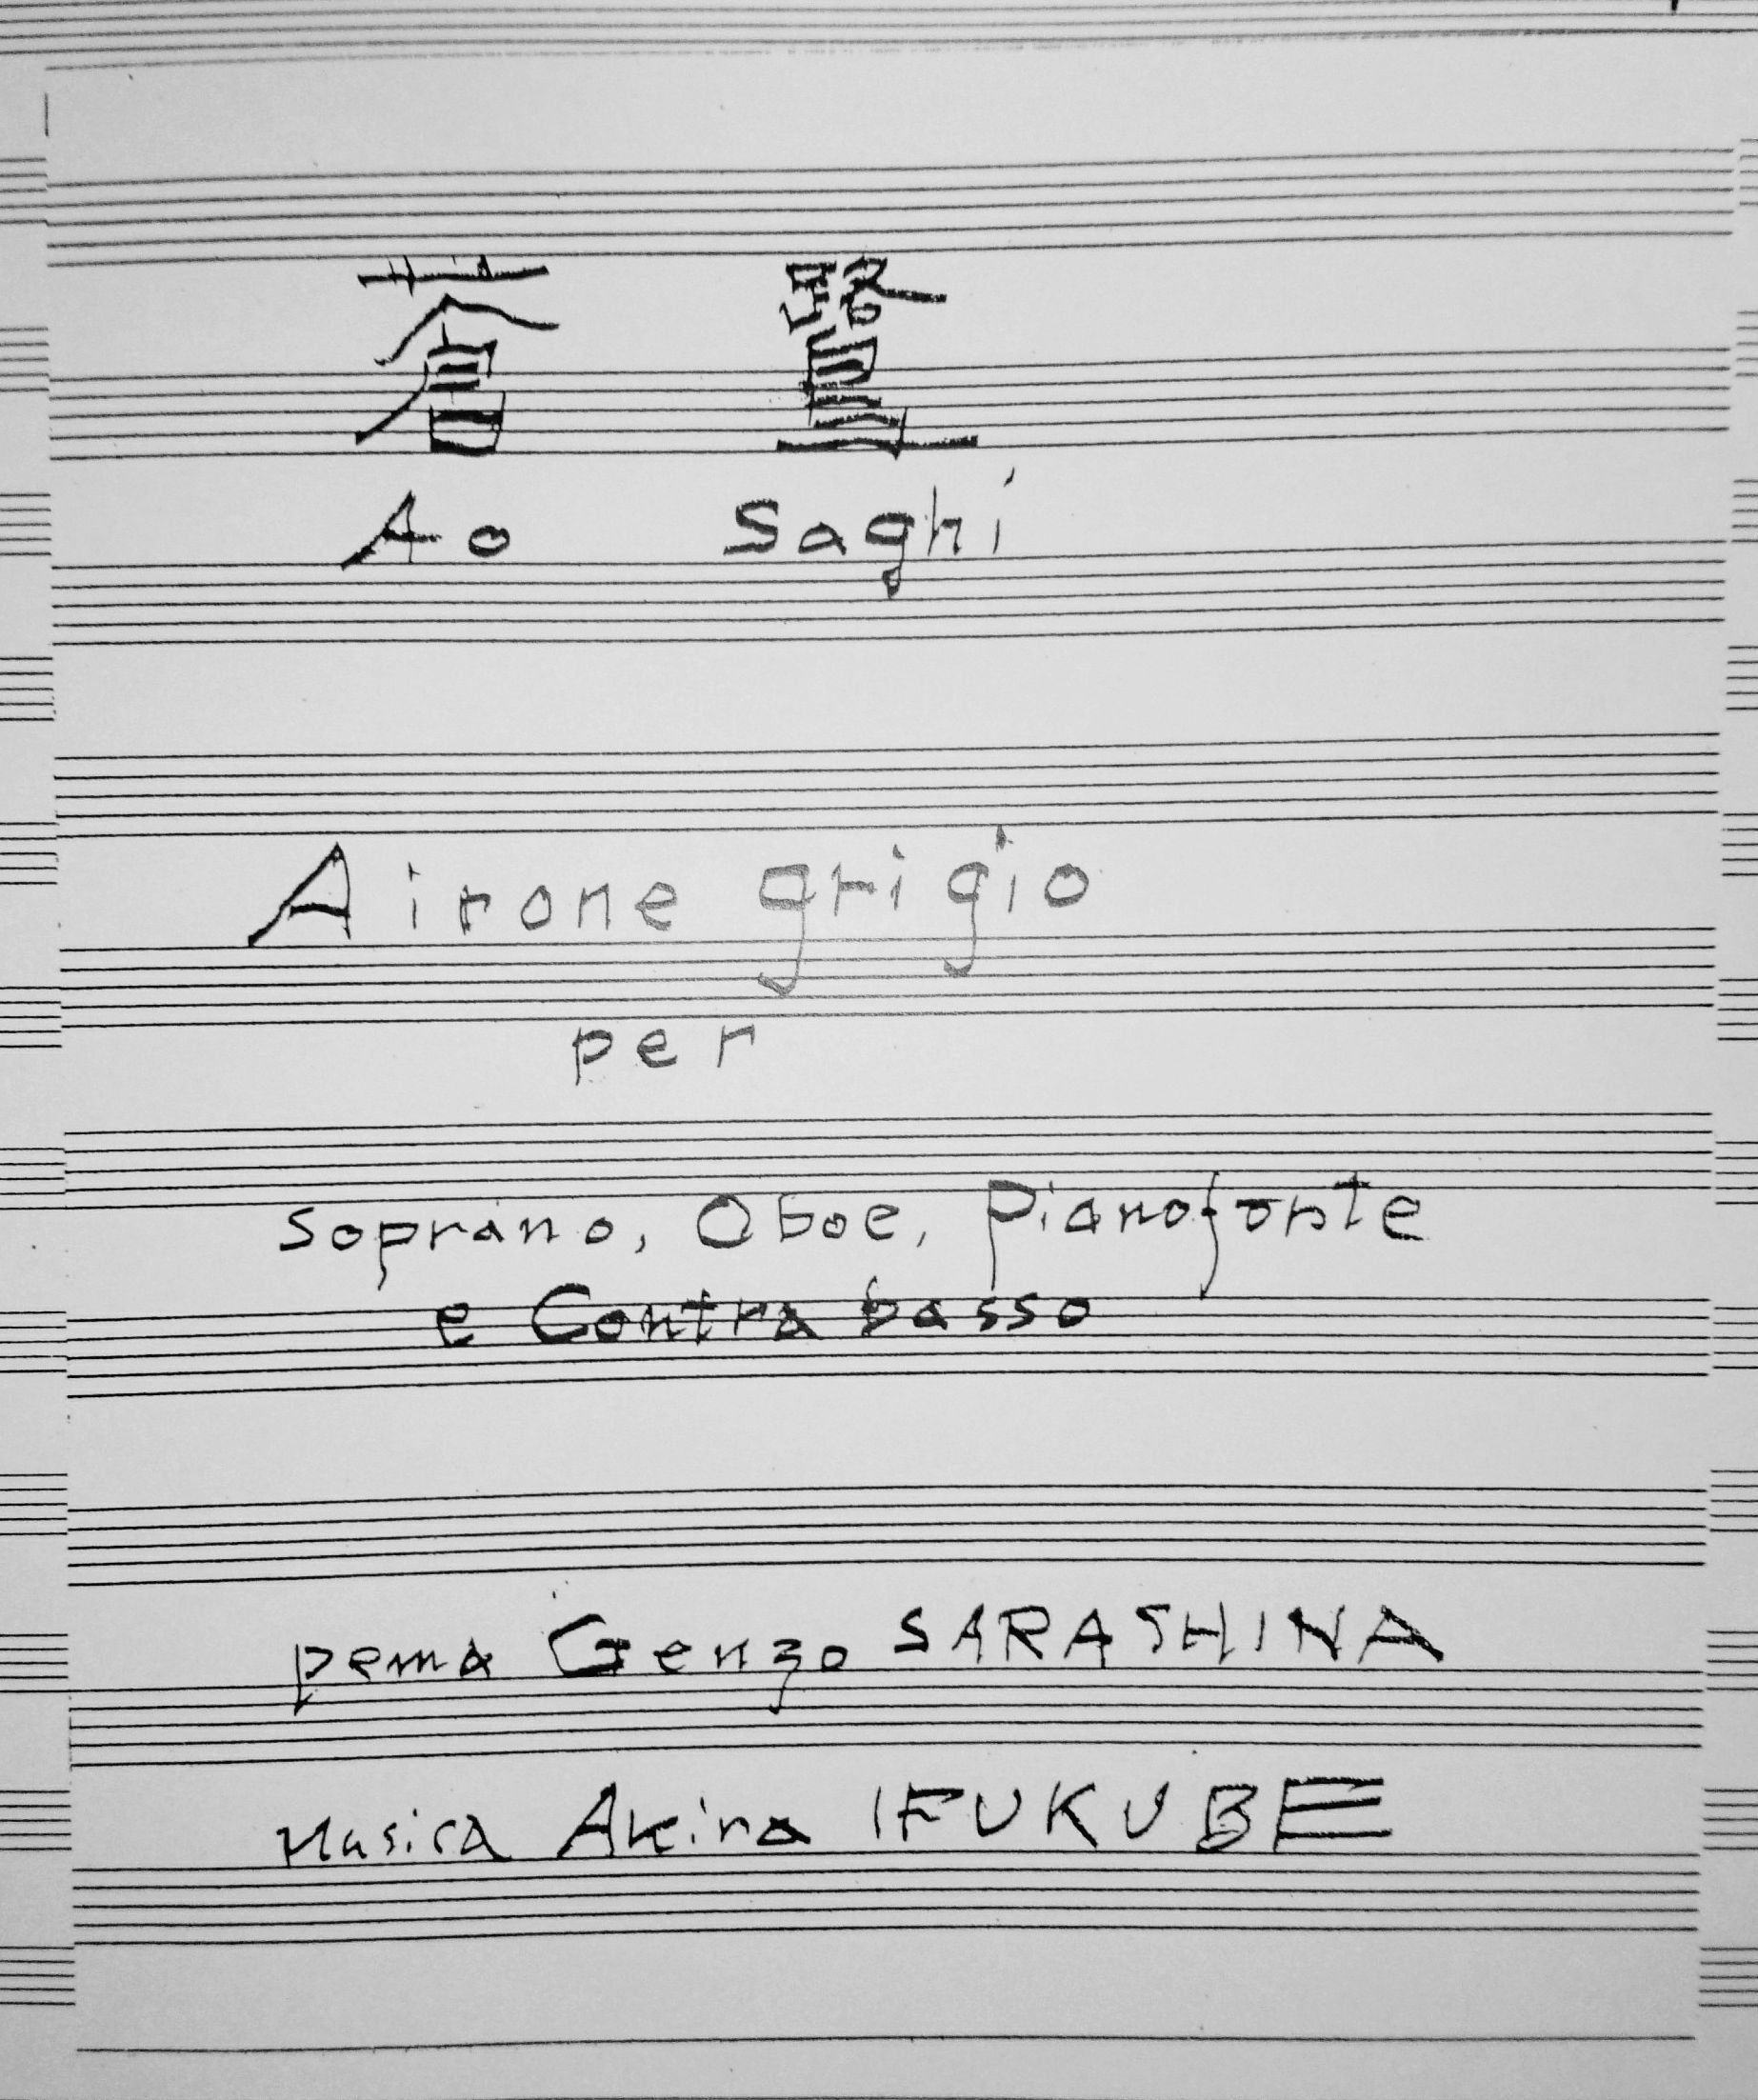 蒼鷺
Ao Saghi
Airone grigio
per
Soprano, Oboe, Pianoforte
e Contrabasso
pema Genzo SARASHINA
Musica Akira IFUKUBE